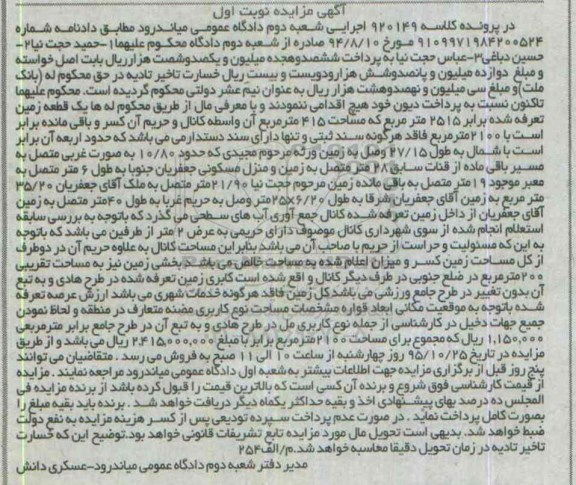 آگهی مزایده نوبت اول
در پرونده کلاسه ۹۲۰۱۴۹ اجرایی شعبه دوم دادگاه عمومی میاندرود مطابق دادنامه شماره
۹۱۰۹۹۷۱۹۸۴۲۰۰۵۲۴ مورخ ۹۴/۸/۱۰ صادره از شعبه دوم دادگاه محکوم علیهما۱-حمید حجت نیا۲-
حسین دباغی۳-عباس حجت نیا به پرداخت ششصدوهجده میلیون و یکصدوشصت هزارریال بابت اصل خواسته
و مبلغ دوازده میلیون و پانصدوشش هزارودویست و بیست ریال خسارت تاخیر تادیه در حق محکوم له (بانک
ملت)و مبلغ سی میلیون و نهصدوهشت هزار ریال به عنوان نیم عشر دولتی محکوم گردیده است. محکوم علیهما
تاکنون نسبت به پرداخت دیون خود هیچ اقدامی ننمودند و با معرفی مال از طریق محکوم له ها یک قطعه زمین
تعرفه شده برابر ۲۵۱۵ متر مربع که مساحت ۴۱۵ مترمربع آن واسطه کانال و حریم آن کسر و باقی مانده برابر
است با ۲۱۰۰مترمربع فاقد هرگونه سند ثبتی و تنها دارای سند دستدارمی می باشد که حدود اربعه آن برابر
است با شمال به طول ۲۷/۱۵ وصل به زمین ورثه مرحوم مجیدی که حدود ۱۰/۸۰ به صورت غربی متصل به
مسیر باقی ماده از قنات سابق ۲۸ متر متصل به زمین و منزل مسکونی جعفریان جنوبا به طول ۶ متر متصل به
معبر موجود ۱۹متر متصل به باقی مانده زمین مرحوم حجت نیا ۲۱/۹۰متر متصل به ملک آقای جعفریان ۳۵/۲۰
متر مربع به زمین آقای جعفریان شرقا به طول ۲۵×۶/۲۰متر وصل به حریم غربا به طول ۴۰متر متصل به زمین
آقای جعفریان از داخل زمین تعرفه شده کانال جمع آوری آب های سطحی می گذرد که باتوجه به بررسی سابقه
استعلام انجام شده از سوی شهرداری کانال موصوف دارای حریمی به عرض ۲ متر از طرفین می باشد که باتوجه
به این که مسئولیت و حراست از حریم با صاحب آن می باشد بنابراین مساحت کانال به علاوه حریم آن در دوطرف
از کل مساحت زمین کسر و میزان اعلام شده به مساحت خالص می باشد.بخشی زمین نیز به مساحت تقریبی
۲۰۰مترمربع در ضلع جنوبی در طرف دیگر کانال و اقع شده است کابری زمین تعرفه شده در طرح هادی و به تبع
آن بدون تغییر در طرح جامع ورزشی می باشد کل زمین فاقد هرگونه خدمات شهری می باشد ارزش عرصه تعرفه
شده باتوجه به موقعیت مکانی ابعاد قواره مشخصات مساحت نوع کاربری مضنه متعارف در منطقه و لحاظ نمودن
جمیع جهات دخیل در کارشناسی از جمله نوع کاربری مل در طرح هادی و به تبع آن در طرح جامع برابر مترمربعی
۱,۱۵۰,۰۰۰ ریال که مجموع برای مساحت ۲۱۰۰مترمربع برابر با مبلغ ۲,۴۱۵,۰۰۰,۰۰۰ ریال می باشد و از طریق
مزایده در تاریخ ۹۵/۱۰/۲۵ روز چهارشنبه از ساعت ۱۰ الی ۱۱ صبح به فروش می رسد . متقاضیان می توانند
پنج روز قبل از برگزاری مزایده جهت اطلاعات بیشتر به شعبه اول دادگاه عمومی میاندرود مراجعه نمایند . مزایده
از قیمت کارشناسی فوق شروع و برنده آن کسی است که بالاترین قیمت را قبول کرده باشد از برنده مزایده فی
المجلس ده درصد بهای پیشنهادی اخذ و بقیه حداکثر یکماه دیگر دریافت خواهد شد . برنده باید بقیه مبلغ را
بصورت کامل پرداخت نماید . در صورت عدم پرداخت سپرده تودیعی پس از کسر هزینه مزایده به نفع دولت
ضبط خواهد شد. بدیهی است تحویل مال مورد مزایده تابع تشریفات قانونی خواهد بود.توضیح این که خسارت
تاخیر تادیه در زمان تحویل دقیقا محاسبه خواهد شد.م/الف۲۵۴
مدیر دفتر شعبه دوم دادگاه عمومی میاندرود-عسکری دانش